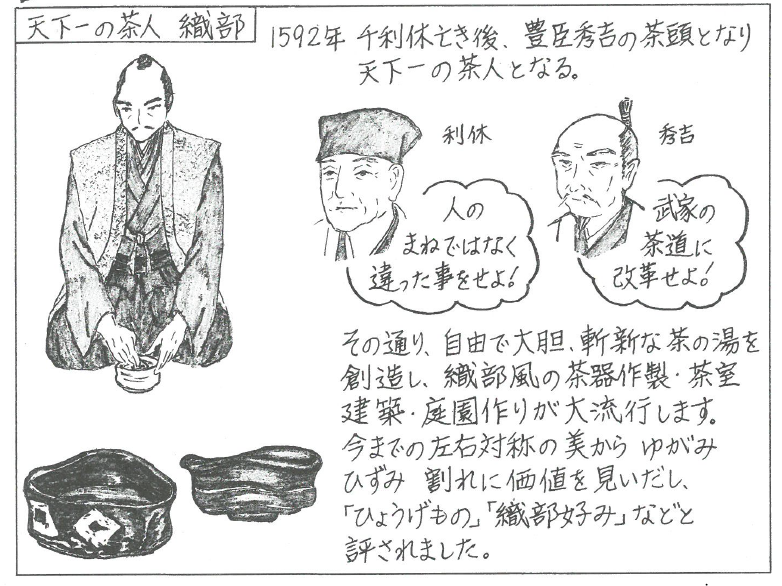 天下一の茶人 織部
1592年 千利休亡き後、豊臣秀吉の茶頭となり
天下一の茶人となる。
利休
人の
まねではなく
違った事をせよ!
秀吉
武家の
茶道に
改革せよ!
その通り、自由で大胆、斬新な茶の湯を
創造し、織部風の茶器作製・茶室
建築・庭園作りが大流行します。
今までの左右対称の美から ゆがみ
ひずみ 割れに価値を見いだし、
「ひょうげもの」「織部好み」などと
評されました。